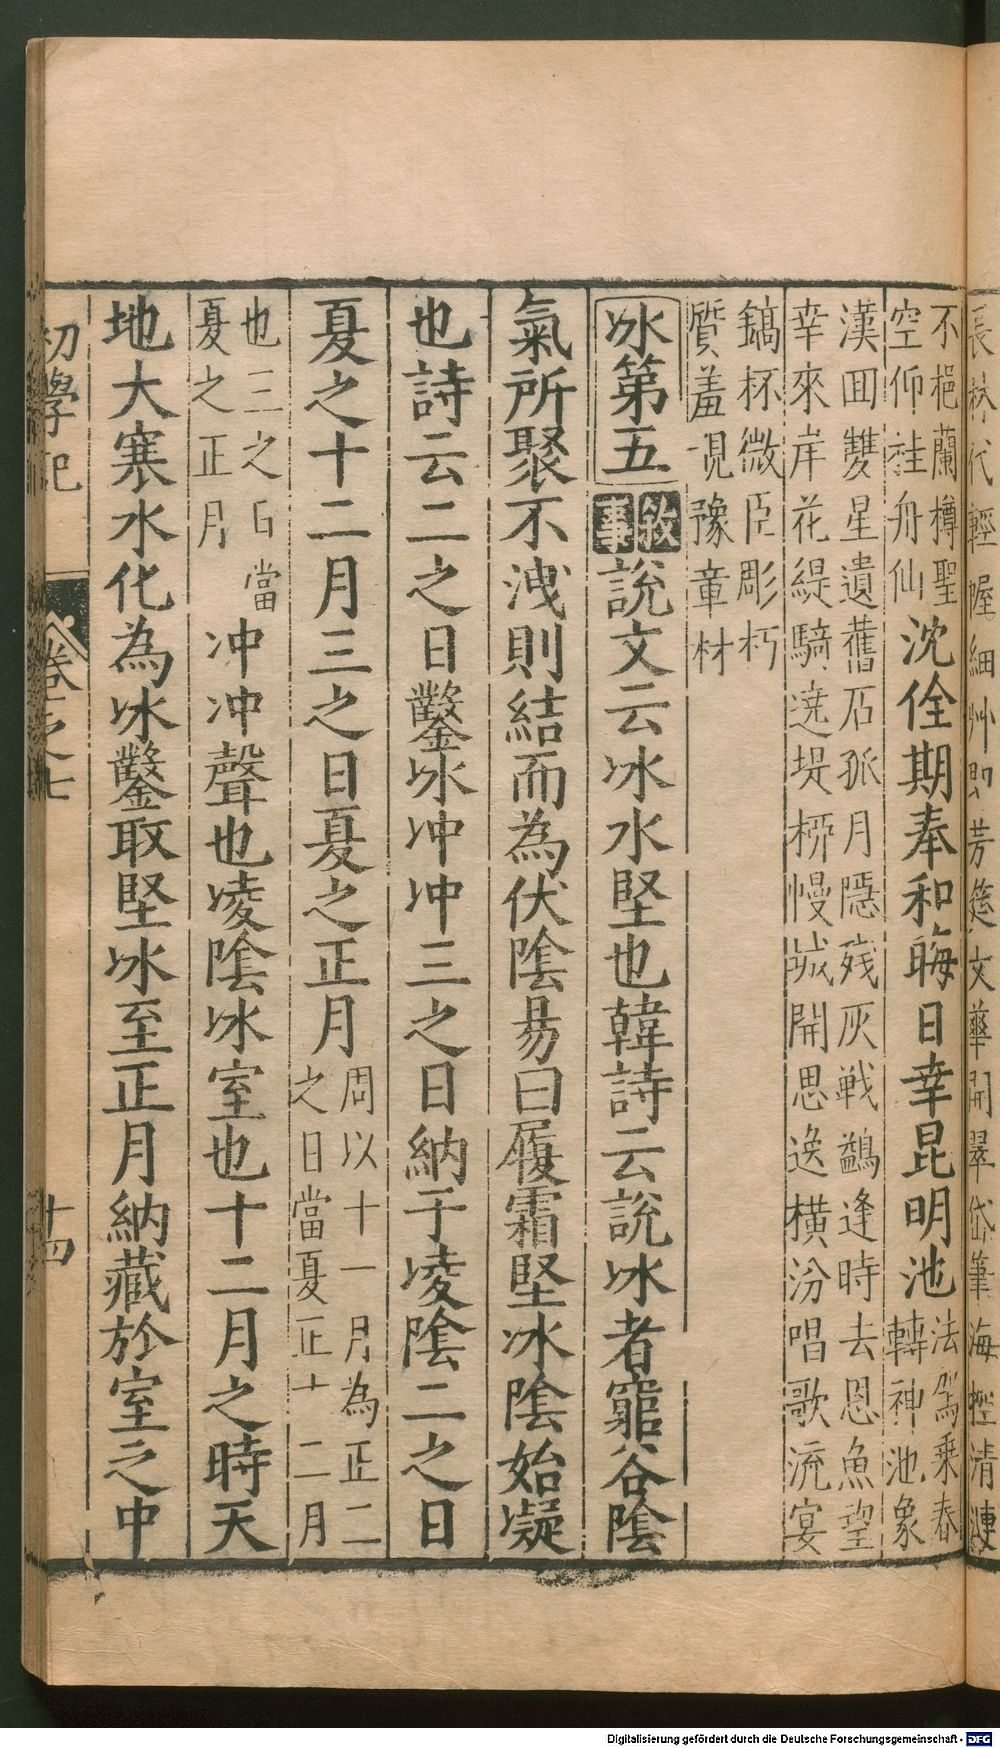 長林代輕幄細艸即芳筵文華開翠岱筆海控清漣
不挹蘭樽聖
空仰桂舟仙
沈佺期奉和晦日幸昆明池
法駕乘春
轉神池象
漢回雙星遺舊石孤月隱殘灰戰鷁逢時去恩魚望
幸來岸花緹騎遶堤桺幔城開思逸橫汾唱歌流宴
鎬杯微臣彫朽
質羞覩豫章材
冰第五敘事說文云冰水堅也韓詩云說冰者窮谷陰
氣所聚不洩則結而為伏陰昜曰履霜堅冰陰始凝
也詩云二之日鑿冰冲冲三之日納于凌陰二之日
夏之十二月三之日夏之正月
周以十一月為正二
之日當夏正十二月
也三之日當
夏之正月
冲冲聲也凌陰冰室也十二月之時天
地大寒水化為冰鑿取堅冰至正月納藏於室之中
初學記 卷之七 十四
Digitalisierung gefördert durch die Deutsche Forschungsgemeinschaft - DFG